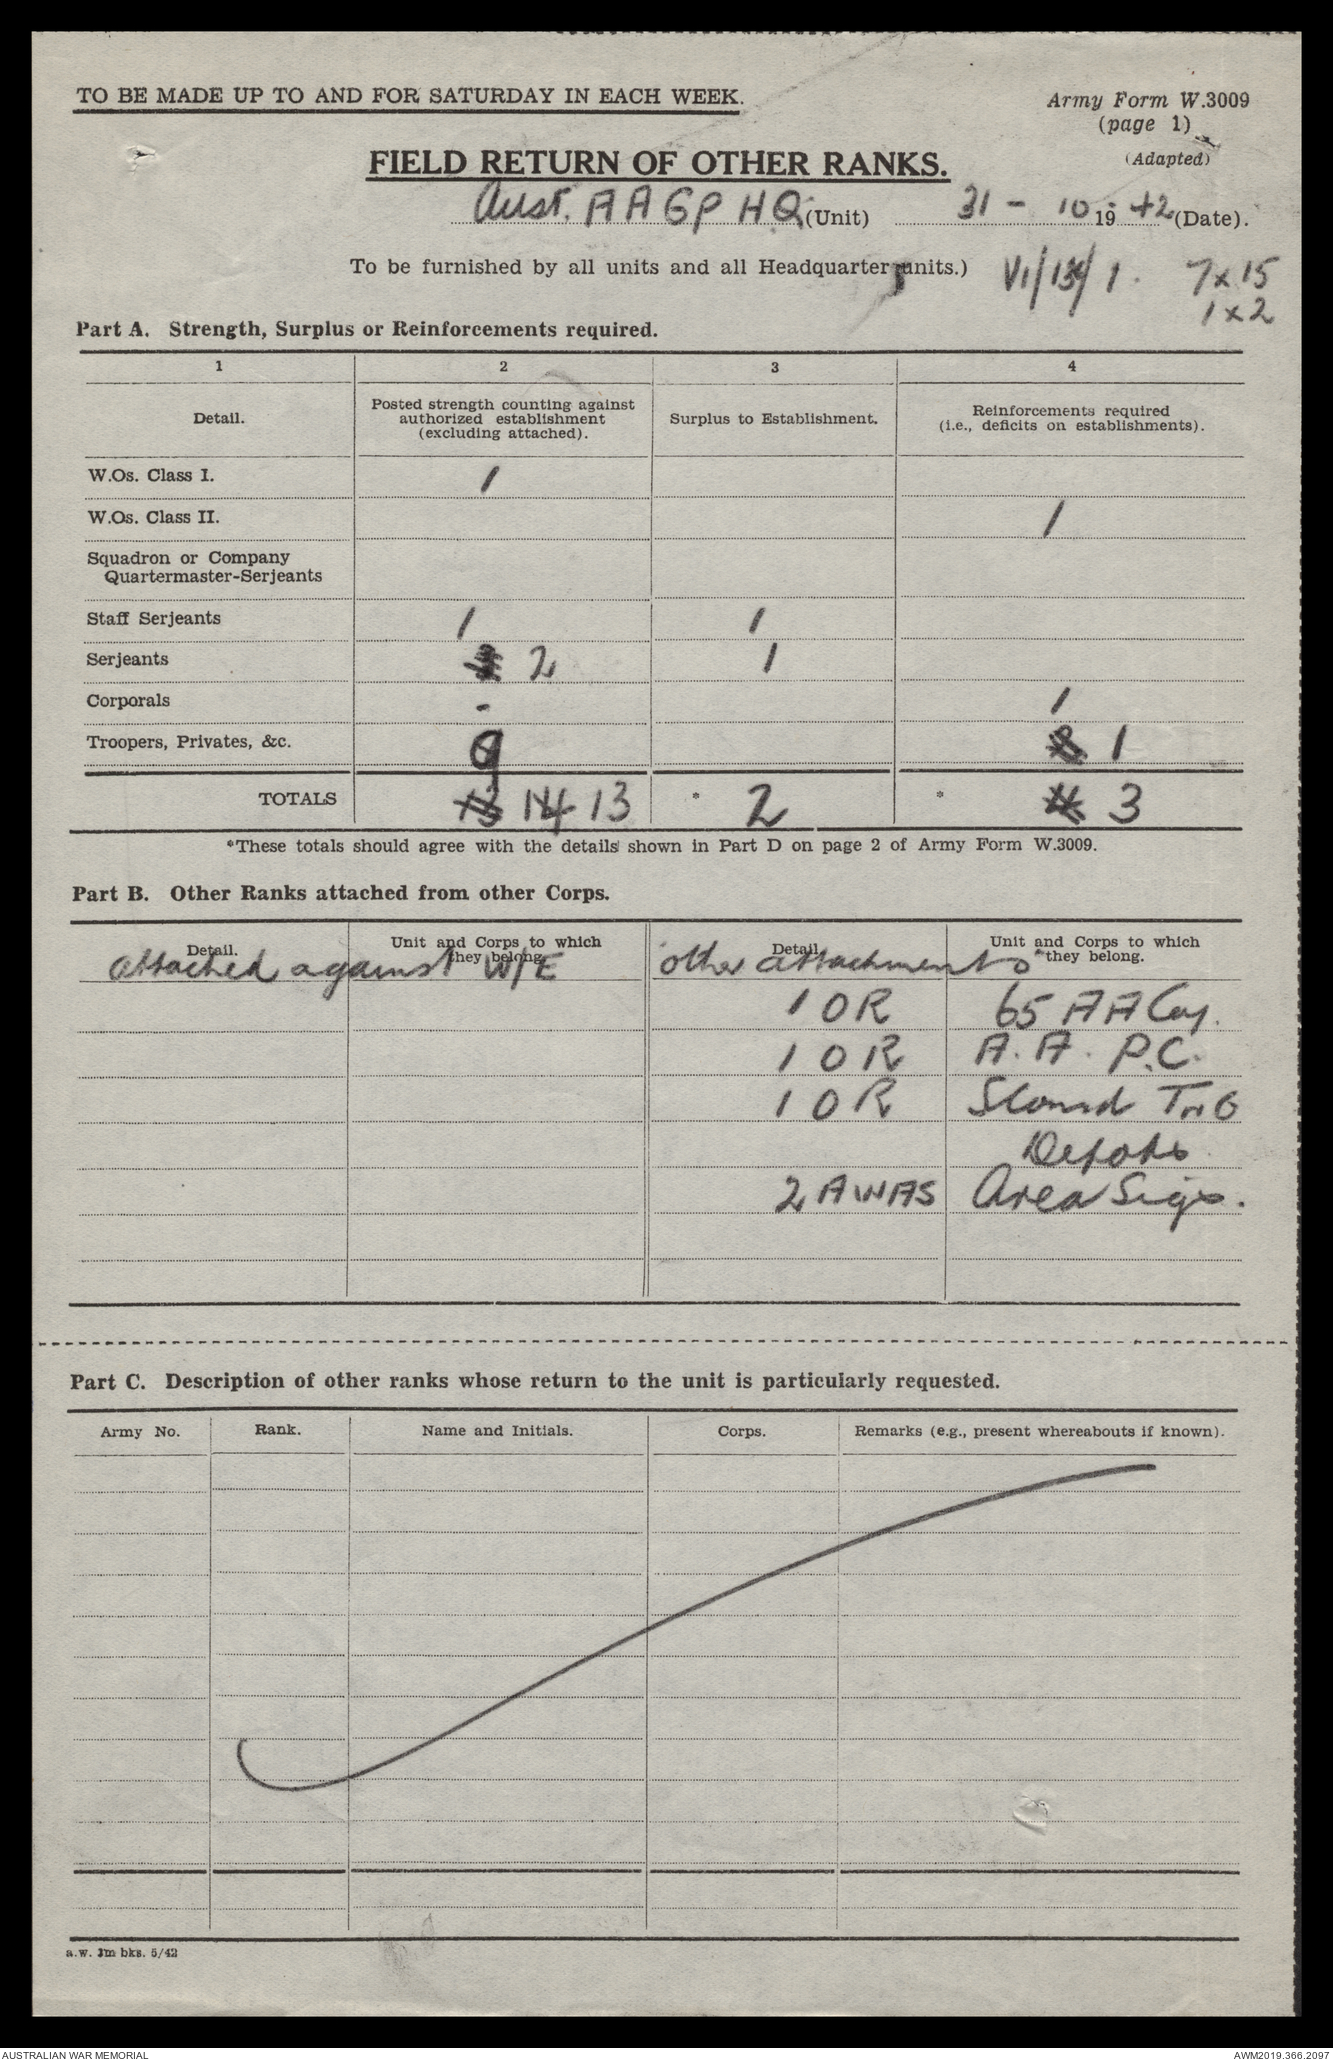 TO BE MADE UP TO AND FOR SATURDAY IN EACH WEEK.
Army Form W.3009
(page 1)
(Adapted)
FIELD RETURN OF OTHER RANKS.
Aust. A A GP H Q (Unit) 31 - 10 19 42 (Date).
To be furnished by all units and all Headquarter units.)
VI/134/1. 7x15
1x2
Part A. Strength, Surplus or Reinforcements required.
1 2 3 4
Detail. Posted strength counting against authorized establishment (excluding attached). Surplus to Establishment. Reinforcements required (i.e., deficits on establishments).
W.Os. Class I. 1
W.Os. Class II. 1
Squadron or Company
Quartermaster-Serjeants
Staff Serjeants 1 1
Serjeants 2 1
Corporals - 1
Troopers, Privates, &c. 9 1
TOTALS 13 14 13 * 2 * 4 3
*These totals should agree with the details shown in Part D on page 2 of Army Form W.3009.
Part B. Other Ranks attached from other Corps.
Detail. Unit and Corps to which they belong. Detail. Unit and Corps to which they belong.
attached against W/E other attachments
1 O R 65 A A Coy.
1 O R A. A. P.C.
1 O R Sound TNG
Depots
2 AWAS Area Sigs.
Part C. Description of other ranks whose return to the unit is particularly requested.
Army No. Rank. Name and Initials. Corps. Remarks (e.g., present whereabouts if known).
a.w. 3m bks. 5/42
AUSTRALIAN WAR MEMORIAL
AWM2019.366.2097